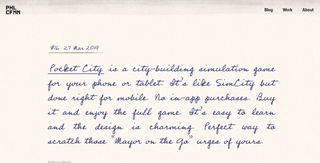 PHL
CFMN
Blog Work About
#16. 27 Mar 2019
Pocket City is a city-building simulation game
for your phone or tablet. It's like SimCity but
done right for mobile. No in-app purchases. Buy
it and enjoy the full game. It's easy to learn
and the design is charming. Perfect way to
scratch those "Mayor on the Go" urges of yours.